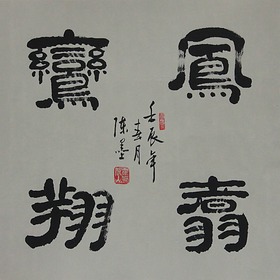 鳳翥
鸞翔
壬辰年
春月
陈墨